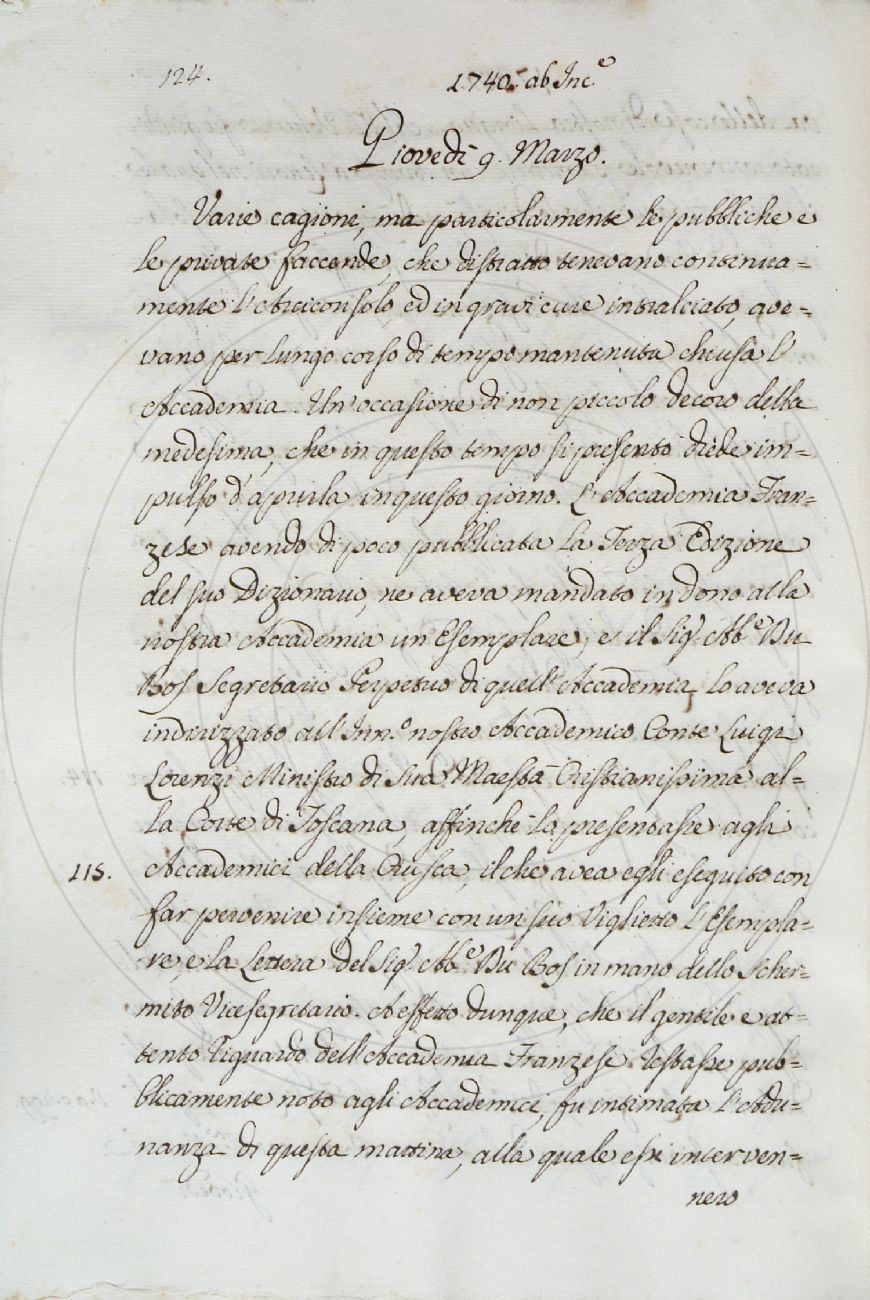 124.
1740. ab Inc.e
Giovedì 9. Marzo.
Varie cagioni, ma particolarmente le pubbliche e
le private faccende, che distratto tenevano continua=
mente l'Arciconsolo ed in gravi cure intralciato, ave=
vano per lungo corso di tempo mantenuta chiusa l'
Accademia. Un'occasione di non piccolo decoro della
medesima, che in questo tempo si presentò diede im=
pulso d'aprirla in questo giorno. L'Accademia Fran=
zese avendo di poco pubblicata la Terza Edizione
del suo Dizionario, ne aveva mandato in dono alla
nostra Accademia un Esemplare; e il Sig.r Ab.e Du
Bos Segretario Perpetuo di quell'Accademia lo aveva
indirizzato all'Inn.o nostro Accademico Conte Luigi
Lorenzi Ministro di Sua Maestà Cristianissima al=
la Corte di Toscana, affinchè lo presentasse agli
115. Accademici della Crusca, il che avea egli eseguito con
far pervenire insieme con un suo Viglietto l'Esempla=
re, e la Lettera del Sig.r Ab.e Du Bos in mano dello Scher=
mito Vicesegretario. A effetto dunque, che il gentile e at=
tento riguardo dell'Accademia Franzese restasse pub=
blicamente noto agli Accademici, fu intimata l'Adu=
nanza di questa mattina, alla quale essi interven=
nero